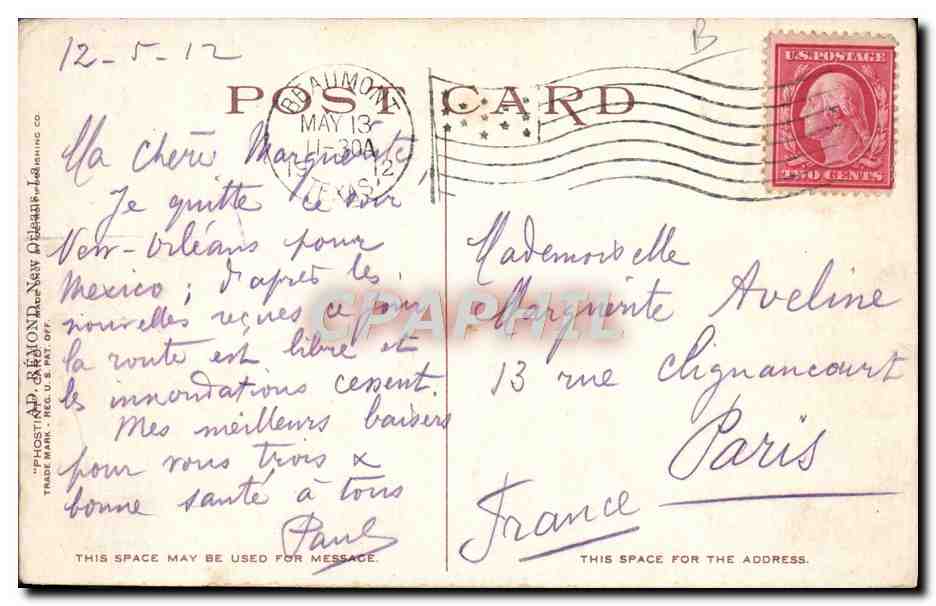 12-5-12
POST CARD
BEAUMONT
MAY 13
11-30A
1912
TEXAS
B
U.S. POSTAGE
TWO CENTS
Ma chère Marguerite,
Je quitte ce soir
New-Orléans pour
Mexico; d'après les
nouvelles reçues ce jour
la route est libre et
les innondations cessent
Mes meilleurs baisers
pour vous trois &
bonne santé à tous
Paul
Mademoiselle
Marguerite Aveline
13 rue Clignancourt
Paris
France
CPAPHIL
AD. RÉMOND, New Orleans, La.
"PHOSTINT" CARD
PUBLISHING CO.
TRADE MARK - REG. U.S. PAT. OFF.
THIS SPACE MAY BE USED FOR MESSAGE.
THIS SPACE FOR THE ADDRESS.